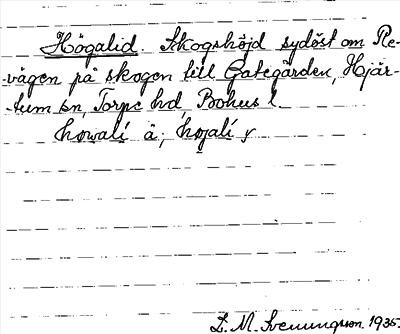 Högalid. Skogshöjd sydöst om Re-
vägen på skogen till Gategården, Hjär-
tum sn, Torpe hd, Bohus l.
howali ä; højali y
L. M. Svenungsson 1935.